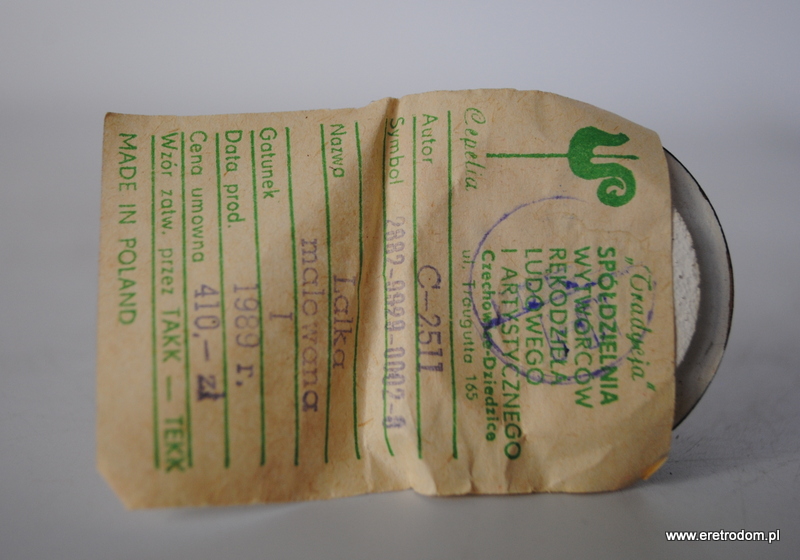 Cepelia
„Tradycja”
SPÓŁDZIELNIA
WYTWÓRCÓW
RĘKODZIEŁA
LUDOWEGO
I ARTYSTYCZNEGO
Czechowice-Dziedzice
ul. Traugutta 165
Autor C-2511
Symbol 2882-0999-0002-0
Nazwa Lalka
malowana
Gatunek I
Data prod. 1989 r.
Cena umowna 410,- zł
Wzór zatw. przez TAKK — TEKK
MADE IN POLAND
www.eretrodom.pl